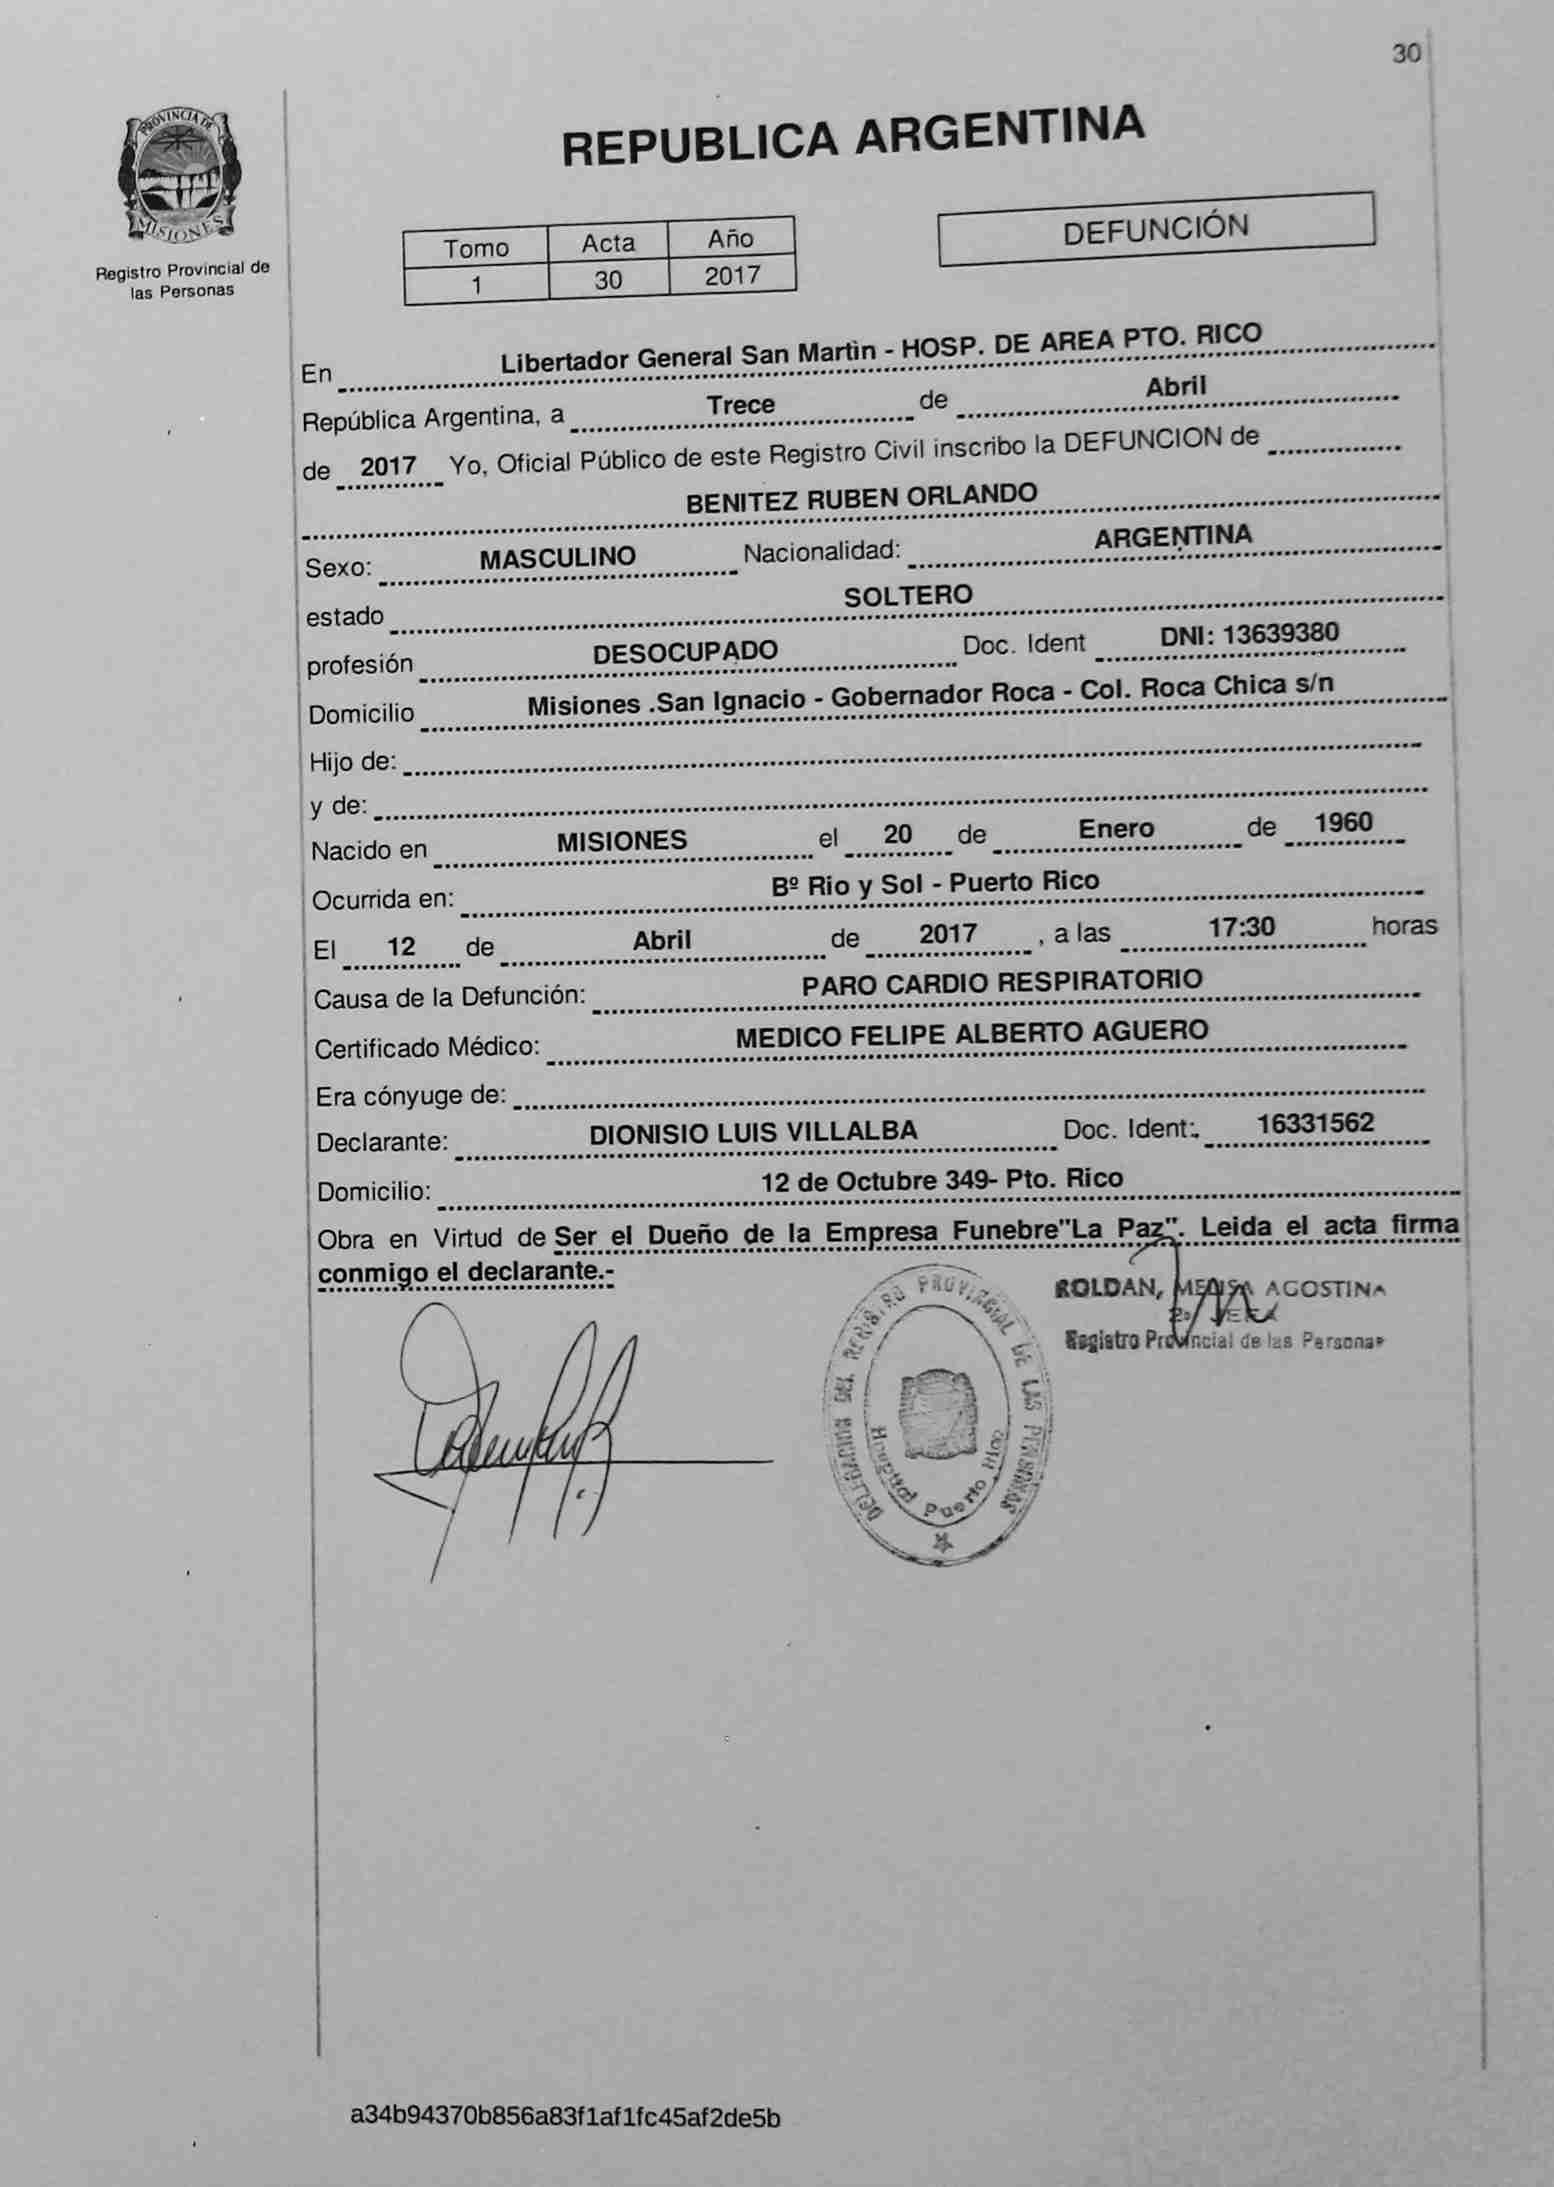 30
PROVINCIA DE
MISIONES
Registro Provincial de
las Personas
REPUBLICA ARGENTINA
Tomo Acta Año
1 30 2017
DEFUNCIÓN
En Libertador General San Martìn - HOSP. DE AREA PTO. RICO
República Argentina, a Trece de Abril
de 2017 Yo, Oficial Público de este Registro Civil inscribo la DEFUNCION de
BENITEZ RUBEN ORLANDO
Sexo: MASCULINO Nacionalidad: ARGENTINA
estado SOLTERO
profesión DESOCUPADO Doc. Ident DNI: 13639380
Domicilio Misiones .San Ignacio - Gobernador Roca - Col. Roca Chica s/n
Hijo de:
y de:
Nacido en MISIONES el 20 de Enero de 1960
Ocurrida en: Bº Rio y Sol - Puerto Rico
El 12 de Abril de 2017 , a las 17:30 horas
Causa de la Defunción: PARO CARDIO RESPIRATORIO
Certificado Médico: MEDICO FELIPE ALBERTO AGUERO
Era cónyuge de:
Declarante: DIONISIO LUIS VILLALBA Doc. Ident: 16331562
Domicilio: 12 de Octubre 349- Pto. Rico
Obra en Virtud de Ser el Dueño de la Empresa Funebre"La Paz". Leida el acta firma
conmigo el declarante.-
ROLDAN, MELISA AGOSTINA
Registro Provincial de las Personas
DELEGACION DEL REGISTRO PROVINCIAL DE LAS PERSONAS
Hospital Puerto Rico
a34b94370b856a83f1af1fc45af2de5b